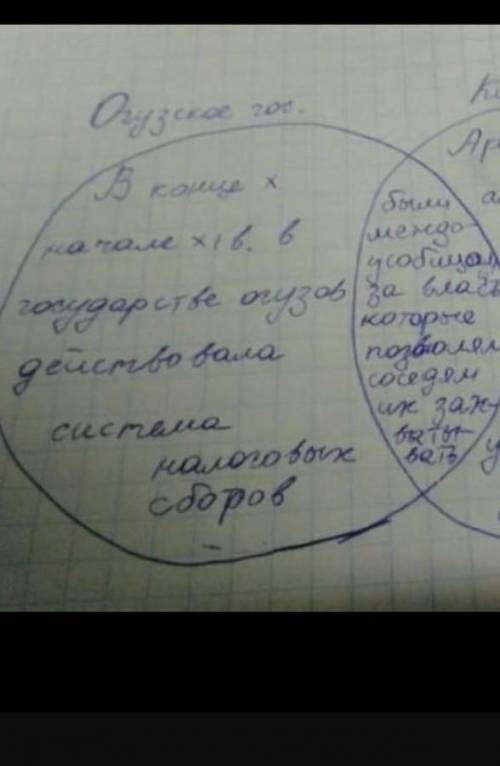 Огузское гос.
В конце X
начале XI в. в
государстве огузов
действовала
система
налоговых
сборов
были
междо-
усобицы
за власть
которые
позволял
соседям
их зах-
ваты-
вать